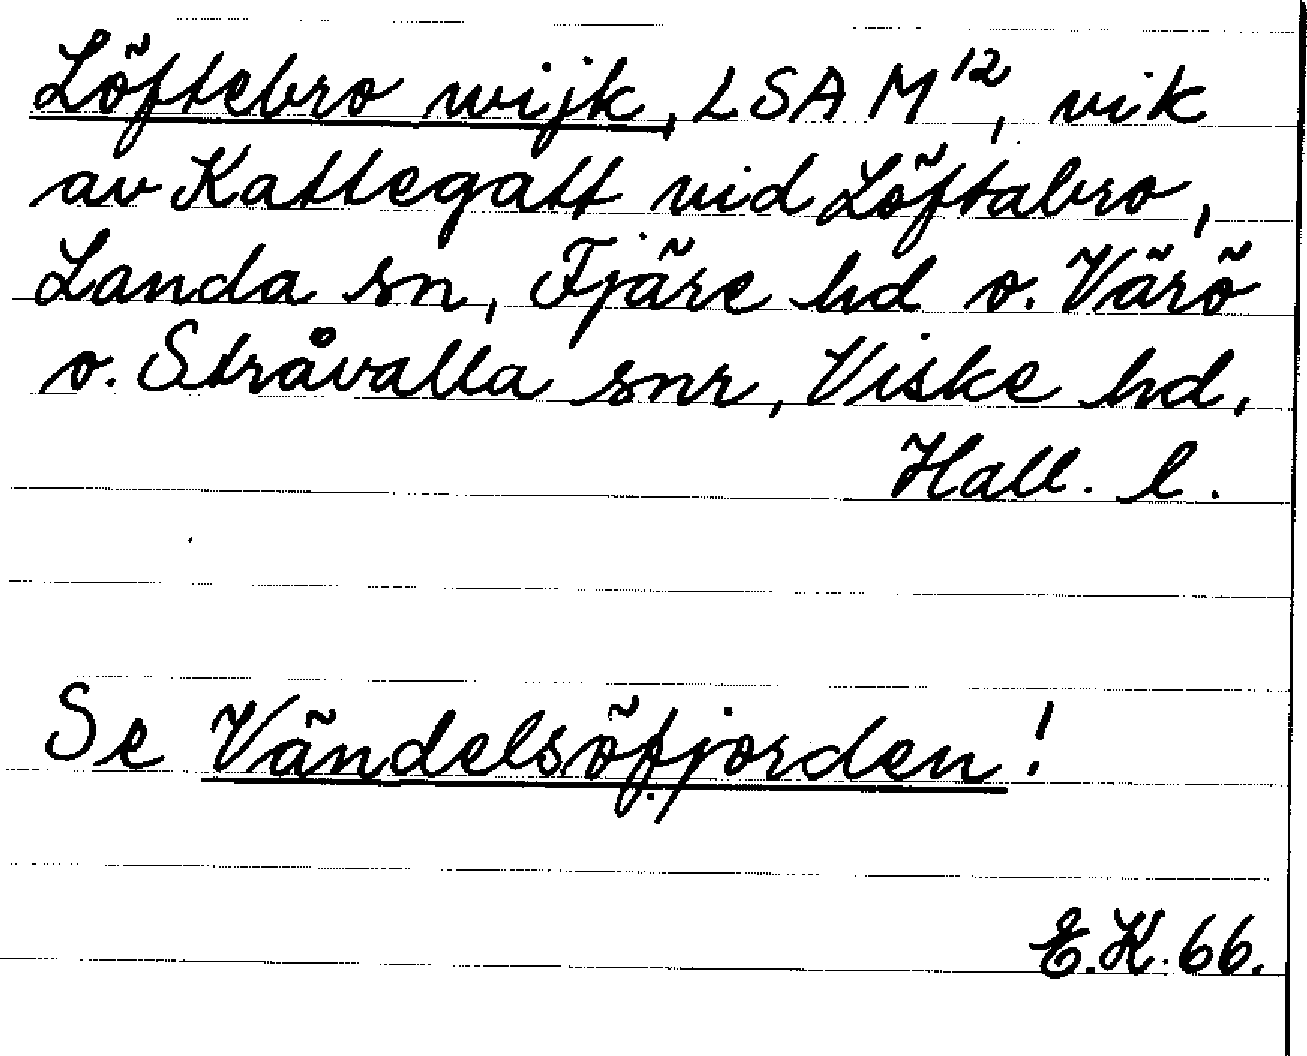 Löftebro wijk, LSA M¹², vik
av Kattegatt vid Löftabro,
Landa sn, Fjäre hd o. Värö
o. Stråvalla snr, Viske hd,
Hall. l.
Se Vändelsöfjorden!
E.K. 66.